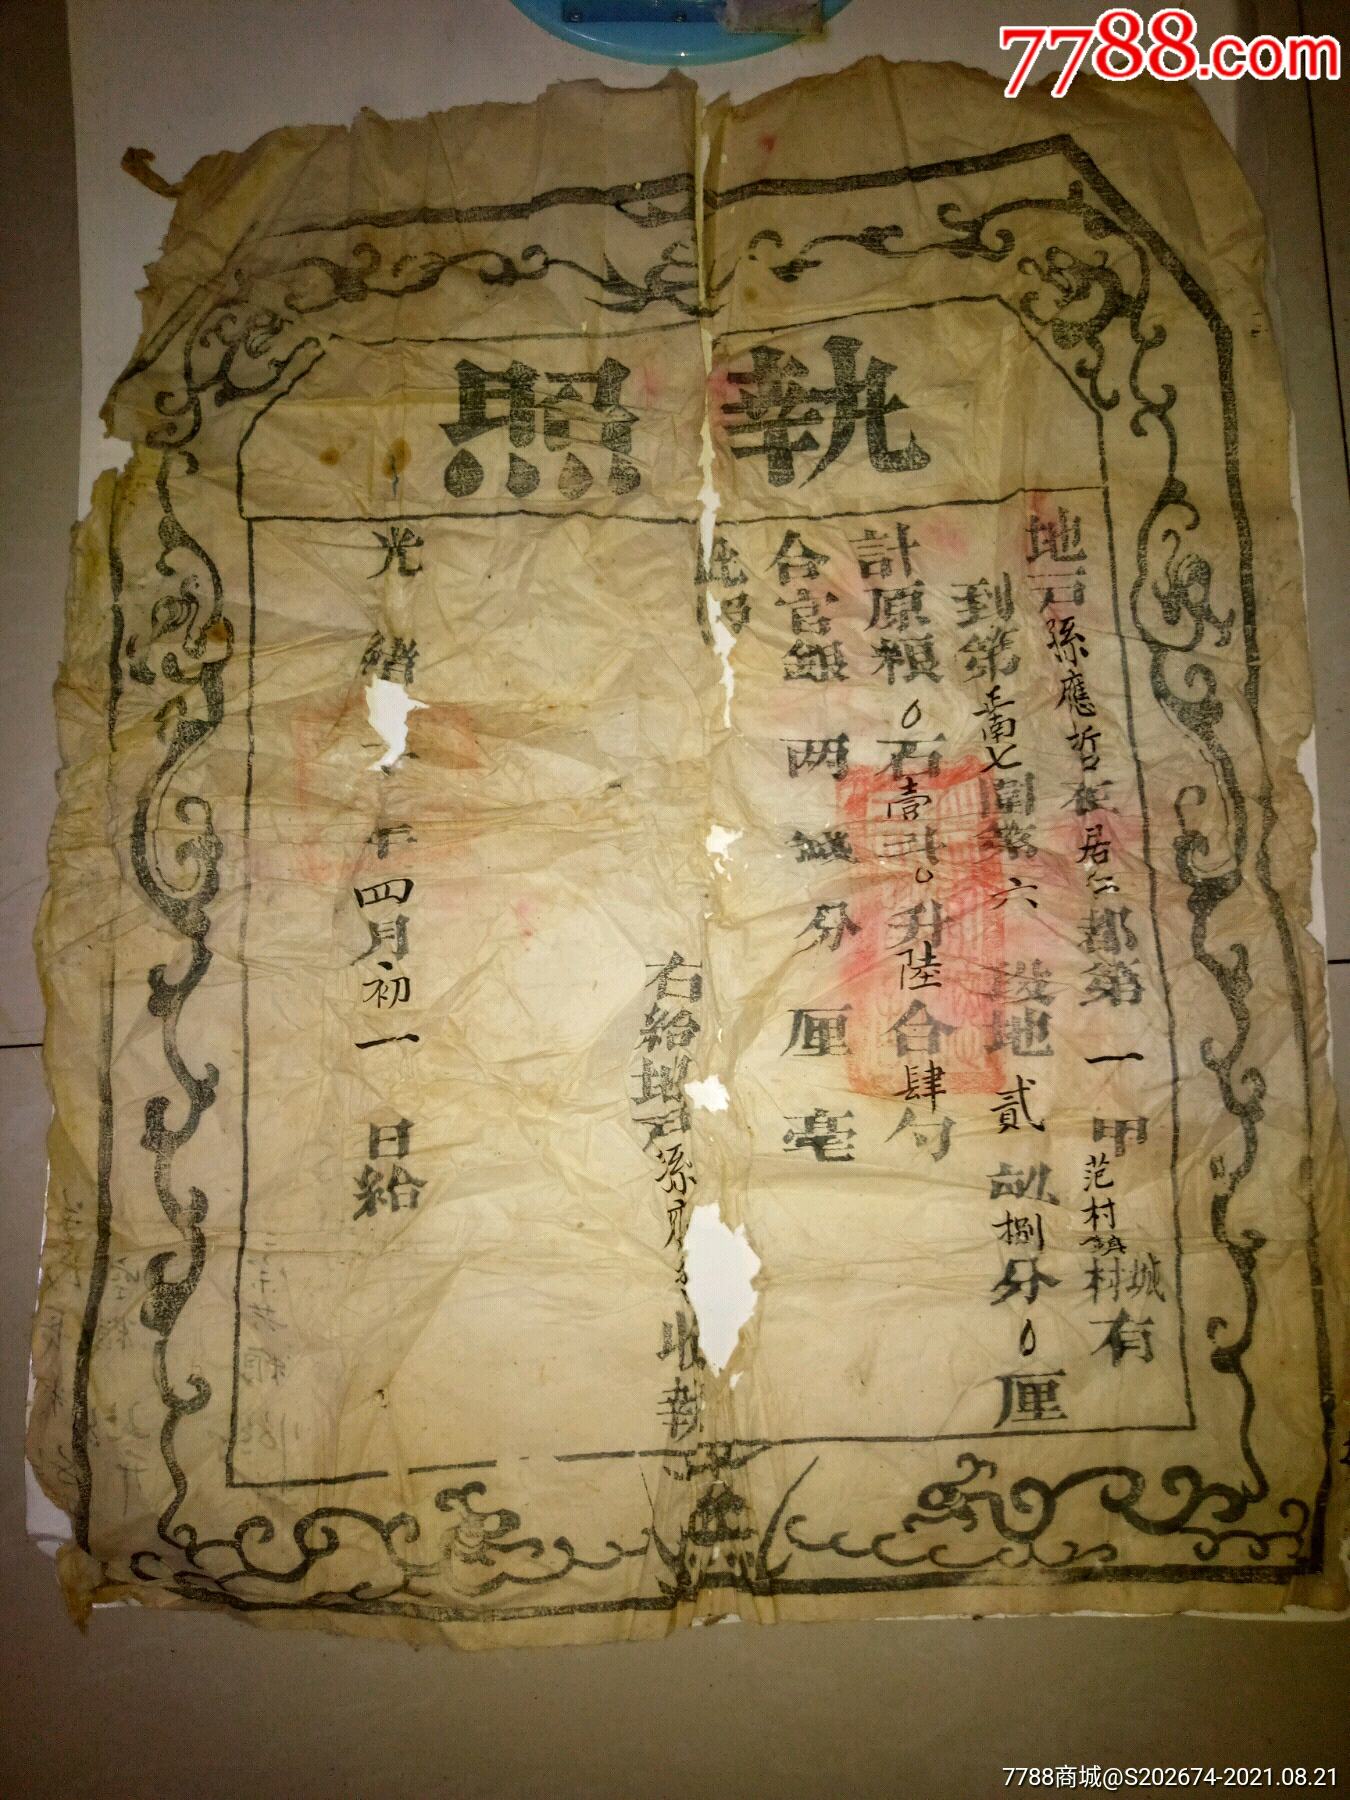 7788.com
執照
地戶孫應哲在居仁都第一甲范村鎮城村有
到第正南七圖第六段地貳畝捌分0厘
計原糧0石壹斗0升陸合肆勺
合官銀兩錢分厘毫
此照
右給地戶孫應收執
光緒十年四月初一日給
7788商城@S202674-2021.08.21